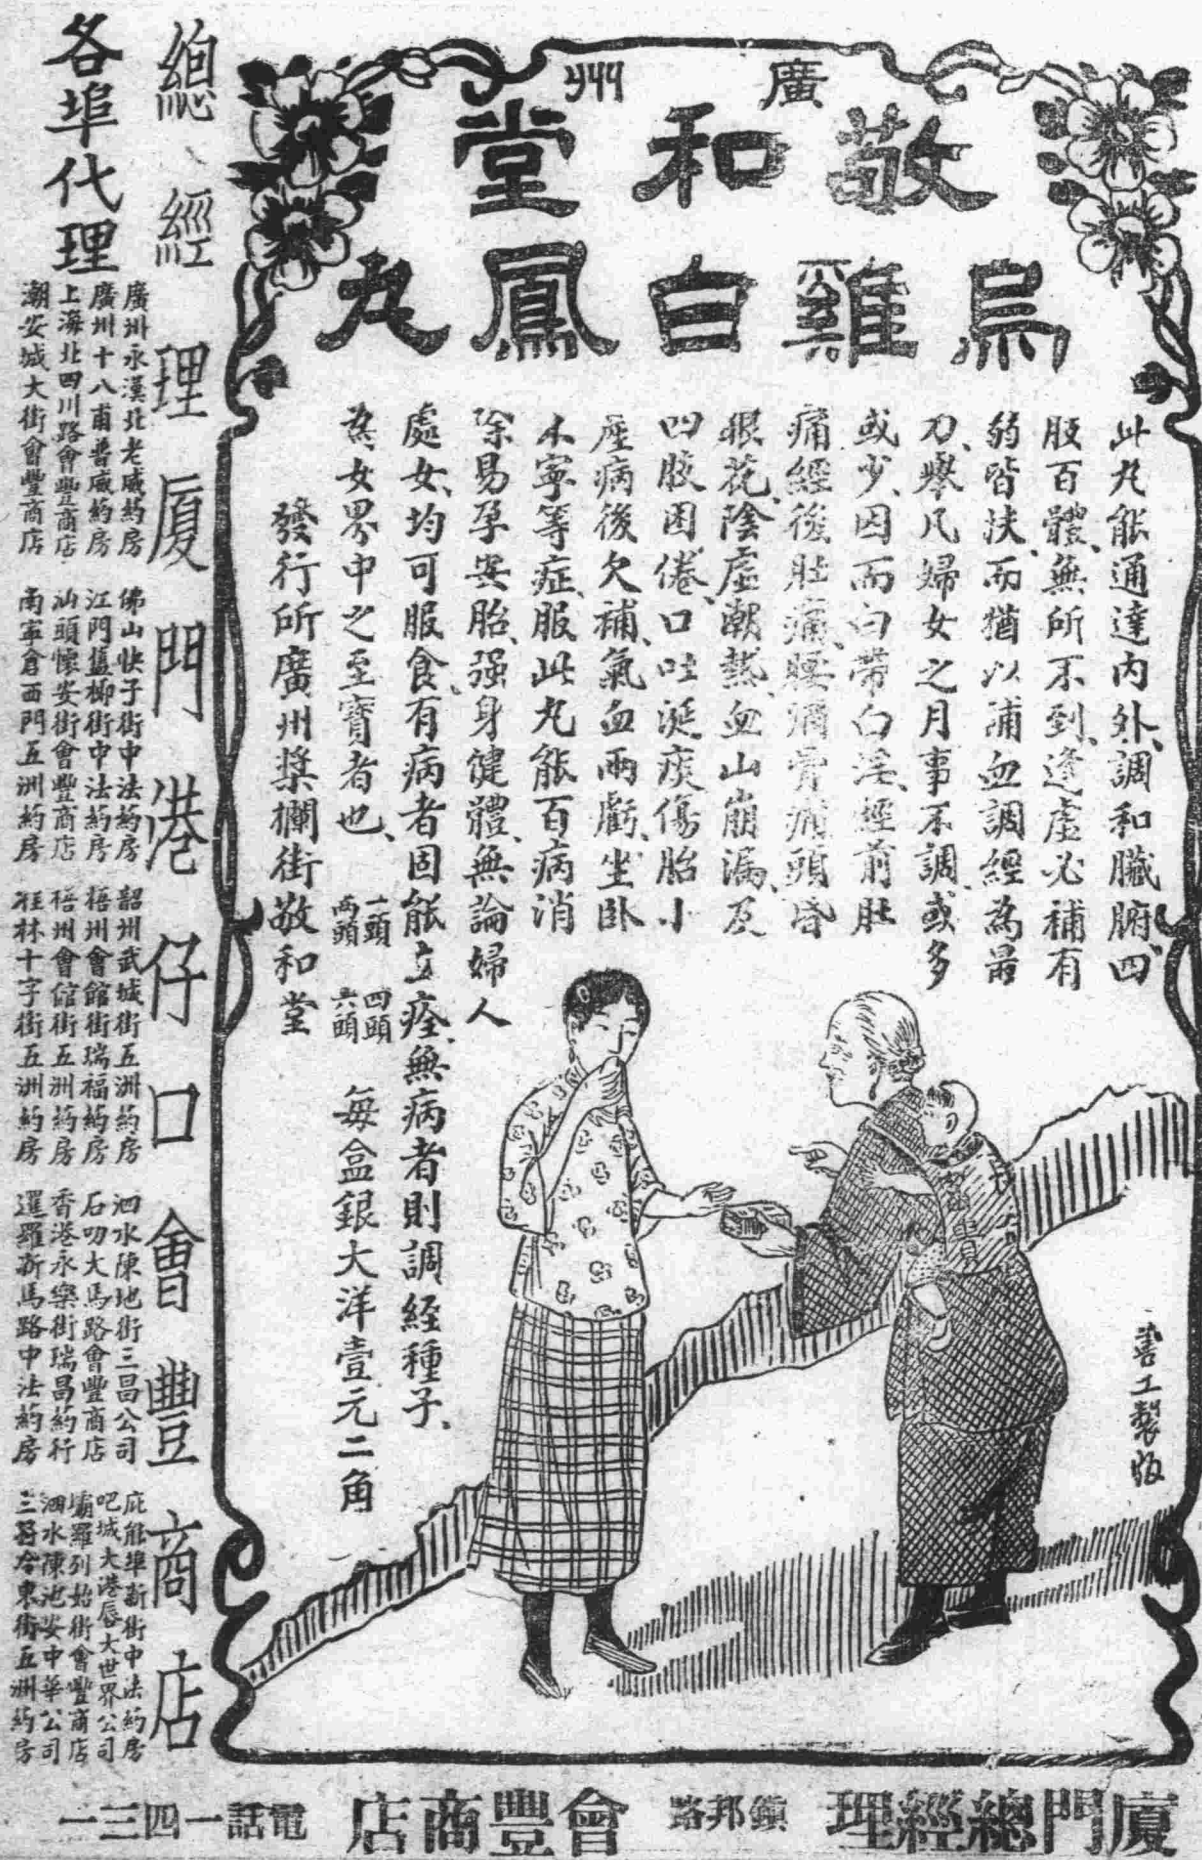 廣州
敬和堂
烏雞白鳳丸
此丸能通達內外、調和臟腑、四
肢百體、無所不到、逢虛必補有
弱皆扶、而猶以補血調經為最
力、舉凡婦女之月事不調、或多
或少、因而白帶白淫、經前肚
痛經後肚痛、腰痛骨痛、頭昏
眼花、陰虛潮熱、血山崩漏、及
四肢困倦、口吐涎痰傷胎小
產病後欠補、氣血兩虧、坐臥
不寧等症、服此丸能百病消
除易孕安胎、强身健體、無論婦人
處女、均可服食、有病者固能立痊、無病者則調經種子、
為女界中之至寶者也、
一頭 四頭
兩頭 六頭
每盒銀大洋壹元二角
發行所廣州槳欄街敬和堂
善工製版
總經理廈門港仔口會豐商店
各埠代理
廣州永漢北老威葯房
廣州十八甫普威葯房
上海北四川路會豐商店
潮安城大街會豐商店
佛山快子街中法葯房
江門蓢街中法葯房
汕頭懷安街會豐商店
南寧倉西門五洲葯房
韶州武城街五洲葯房
梧州會館街瑞福葯房
梧州會館街五洲葯房
桂林十字街五洲葯房
泗水陳地街三昌公司
石叻大馬路會豐商店
香港永樂街瑞昌葯行
暹羅新馬路中法葯房
庇能埠新街中法葯房
吧城大港唇大世界公司
壩羅列始街會豐商店
泗水陳池安中華公司
東街五洲葯房
廈門總經理 鎮邦路 會豐商店 電話一四三一